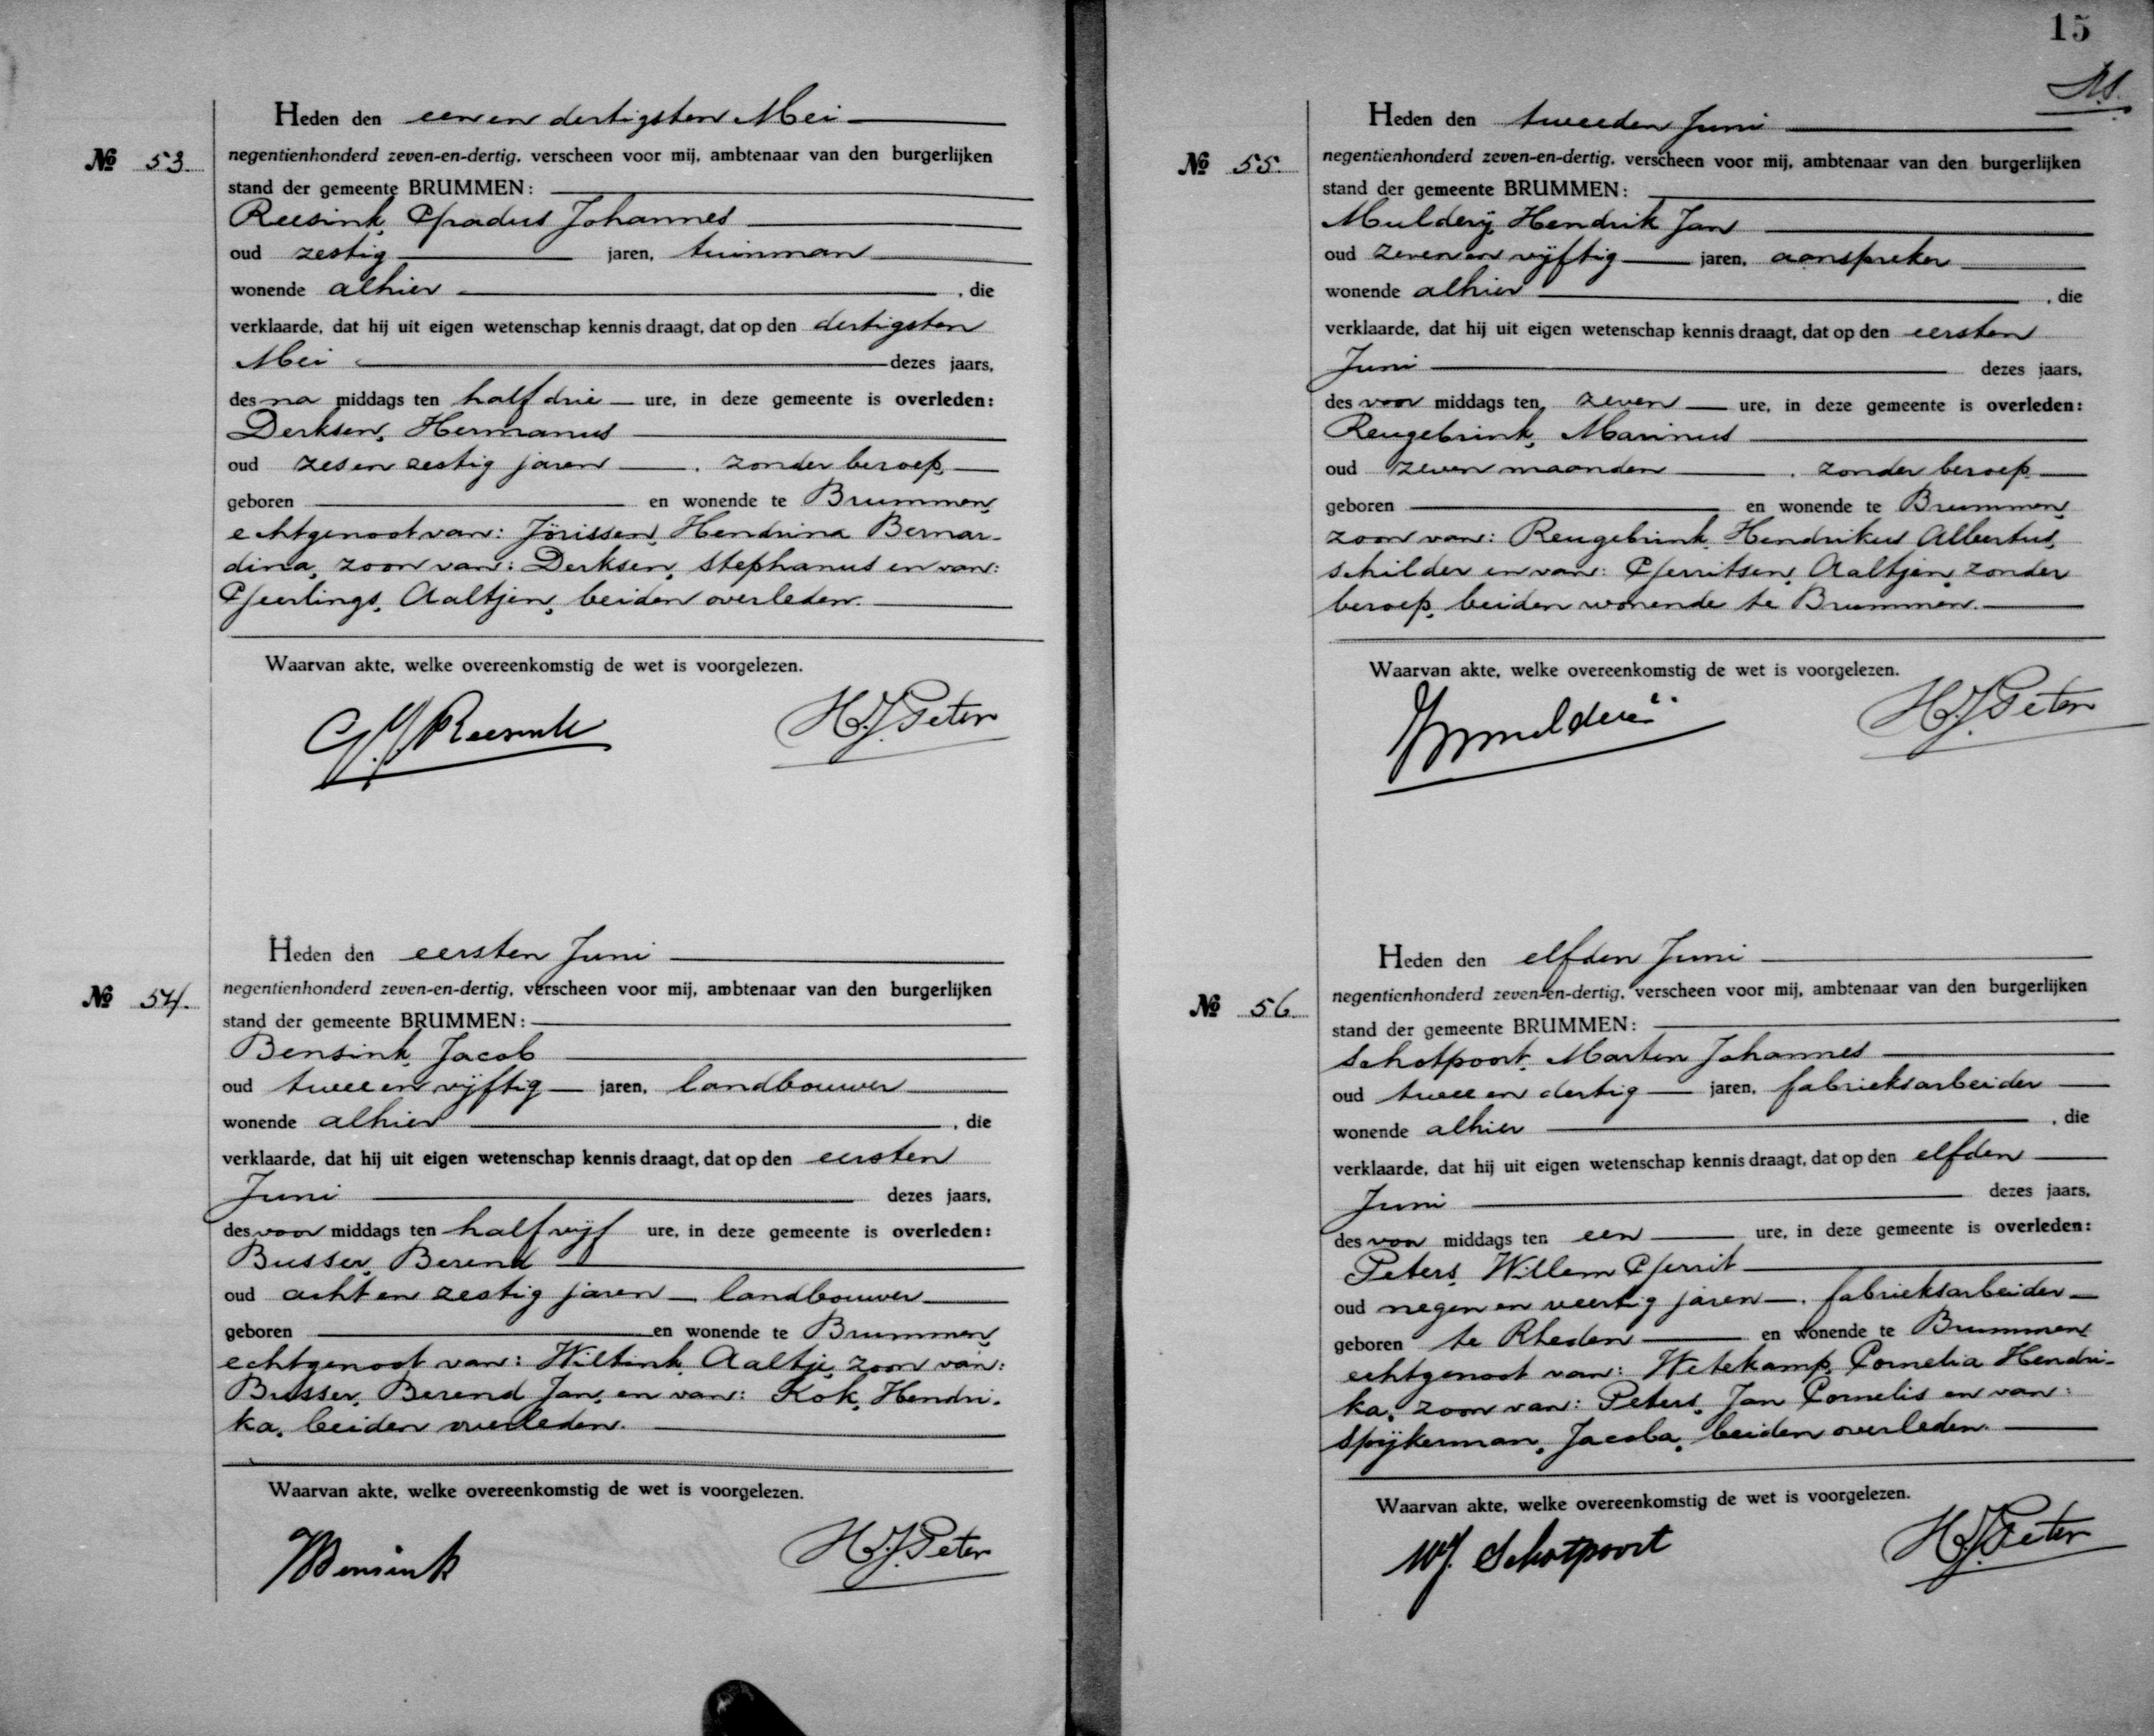 Heden den een en dertigsten Mei
No 53.
negentienhonderd zeven-en-dertig, verscheen voor mij, ambtenaar van den burgerlijken
stand der gemeente BRUMMEN:
Reesink, Gradus Johannes
oud zestig jaren, tuinman
wonende alhier , die
verklaarde, dat hij uit eigen wetenschap kennis draagt, dat op den dertigsten
Mei dezes jaars,
des na middags ten half drie ure, in deze gemeente is overleden:
Derksen, Hermanus
oud zes en zestig jaren , zonder beroep,
geboren en wonende te Brummen,
echtgenoot van: Jörissen, Hendrina Bernar-
dina, zoon van: Derksen, Stephanus en van:
Geerlings, Aaltjen, beiden overleden.
Waarvan akte, welke overeenkomstig de wet is voorgelezen.
G.J. Reesink H.J. Peter
Heden den eersten Juni
No 54.
negentienhonderd zeven-en-dertig, verscheen voor mij, ambtenaar van den burgerlijken
stand der gemeente BRUMMEN:
Bensink, Jacob
oud twee en vijftig jaren, landbouwer
wonende alhier , die
verklaarde, dat hij uit eigen wetenschap kennis draagt, dat op den eersten
Juni dezes jaars,
des voor middags ten half vijf ure, in deze gemeente is overleden:
Busser, Berend
oud acht en zestig jaren landbouwer
geboren en wonende te Brummen,
echtgenoot van: Wiltink, Aaltje, zoon van:
Busser, Berend Jan, en van: Kok, Hendri-
ka, beiden overleden.
Waarvan akte, welke overeenkomstig de wet is voorgelezen.
JBensink H.J. Peter
15
Heden den tweeden Juni
No 55.
negentienhonderd zeven-en-dertig, verscheen voor mij, ambtenaar van den burgerlijken
stand der gemeente BRUMMEN:
Mulderij, Hendrik Jan
oud zeven en vijftig jaren, aanspreker
wonende alhier , die
verklaarde, dat hij uit eigen wetenschap kennis draagt, dat op den eersten
Juni dezes jaars,
des voor middags ten zeven ure, in deze gemeente is overleden:
Reugebrink, Marinus
oud zeven maanden , zonder beroep
geboren en wonende te Brummen,
zoon van: Reugebrink, Hendrikus Albertus,
schilder en van: Gerritsen, Aaltjen, zonder
beroep, beiden wonende te Brummen.
Waarvan akte, welke overeenkomstig de wet is voorgelezen.
HJMulderij H.J. Peter
Heden den elfden Juni
No 56.
negentienhonderd zeven-en-dertig, verscheen voor mij, ambtenaar van den burgerlijken
stand der gemeente BRUMMEN:
Schotpoort, Marten Johannes
oud twee en dertig jaren, fabrieksarbeider
wonende alhier , die
verklaarde, dat hij uit eigen wetenschap kennis draagt, dat op den elfden
Juni dezes jaars,
des voor middags ten een ure, in deze gemeente is overleden:
Peters, Willem Gerrit
oud negen en veertig jaren , fabrieksarbeider
geboren te Rheden en wonende te Brummen
echtgenoot van: Wetekamp, Cornelia Hendri-
ka, zoon van: Peters, Jan Cornelis en van:
Spijkerman, Jacoba, beiden overleden.
Waarvan akte, welke overeenkomstig de wet is voorgelezen.
MJ. Schotpoort H.J. Peter